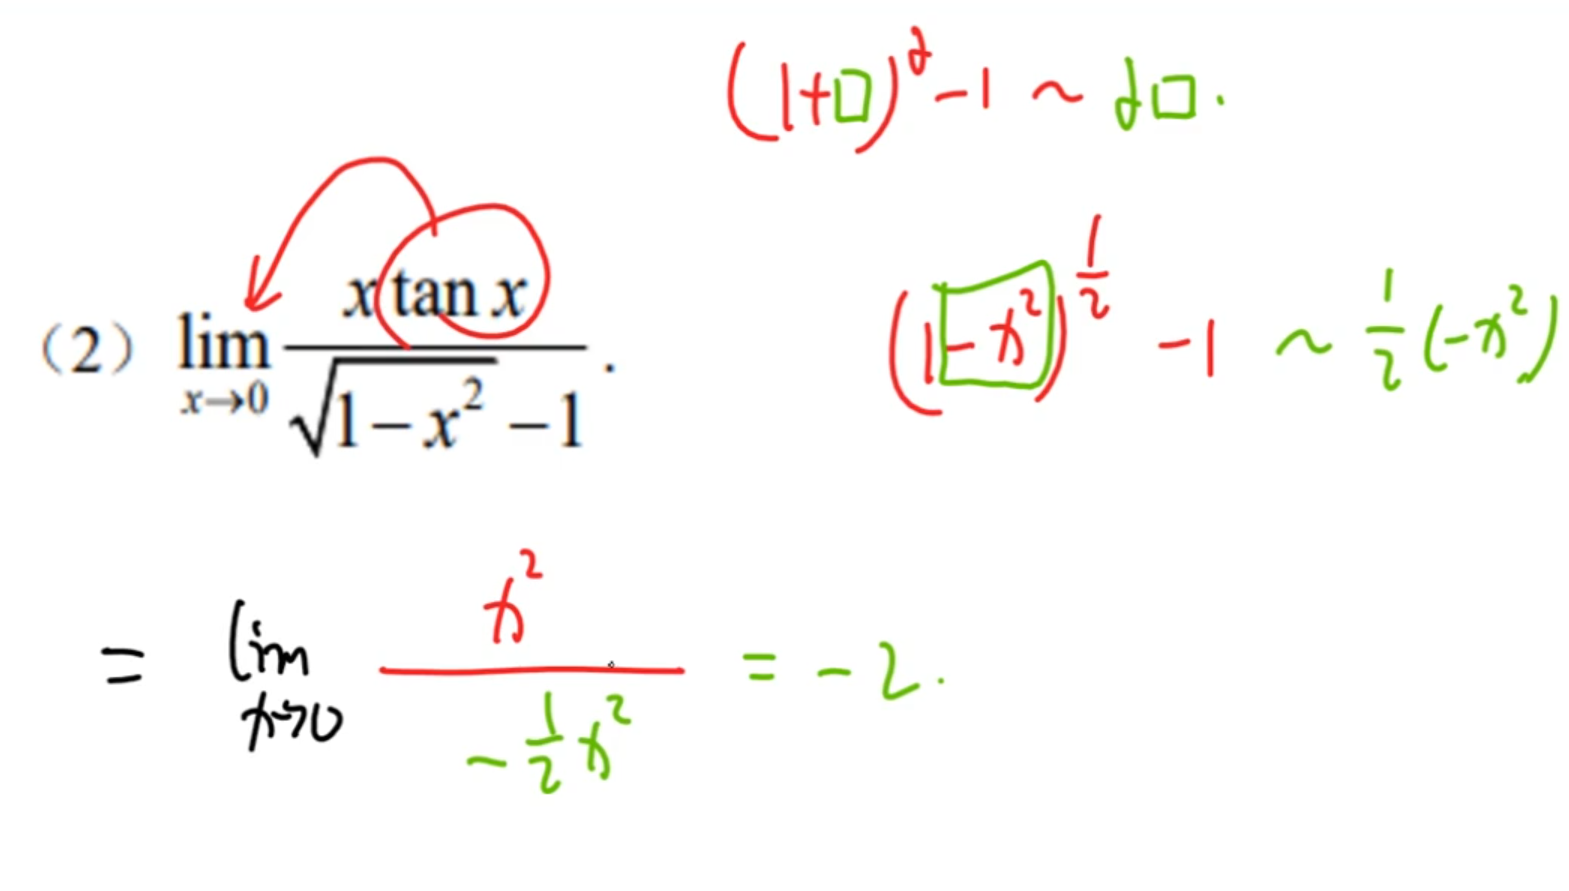 (1+□)^α -1 ~ α□.
（2）lim_{x→0} \frac{x tan x}{\sqrt{1-x^2}-1}.
(1-x^2)^{\frac{1}{2}} -1 ~ \frac{1}{2}(-x^2)
= lim_{x→0} \frac{x^2}{-\frac{1}{2}x^2} = -2.